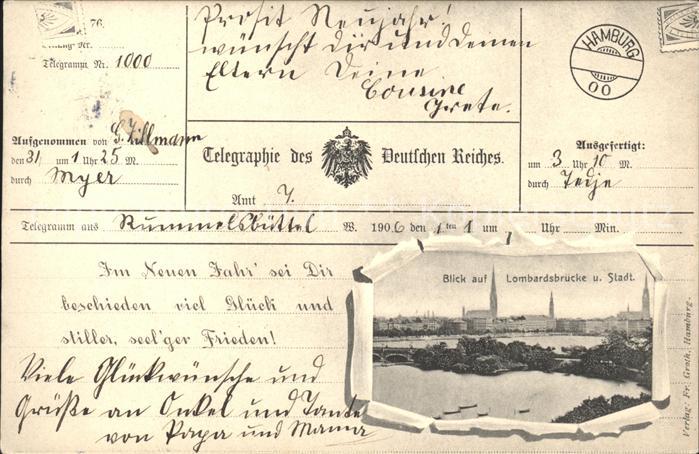 76.
Telegramm Nr. 1000
Prosit Neujahr!
wünscht Dir und Deinen
Eltern Deine
Cousine
Grete.
HAMBURG
00
Aufgenommen von S. Zillmann
den 31 um 1 Uhr 25 M.
durch Myer
Telegraphie des Deutschen Reiches.
Amt 7.
Ausgefertigt:
um 3 Uhr 10 M.
durch Tedje
Telegramm aus Rummelsbüttel W. 1906 den 1ten 1 um 1 Uhr Min.
Im Neuen Jahr' sei Dir
beschieden viel Glück und
stiller, seel'ger Frieden!
Viele Glückwünsche und
Grüße an Onkel und Tante
von Papa und Mama
Blick auf Lombardsbrücke u. Stadt.
Verlag Fr. Groth, Hamburg.